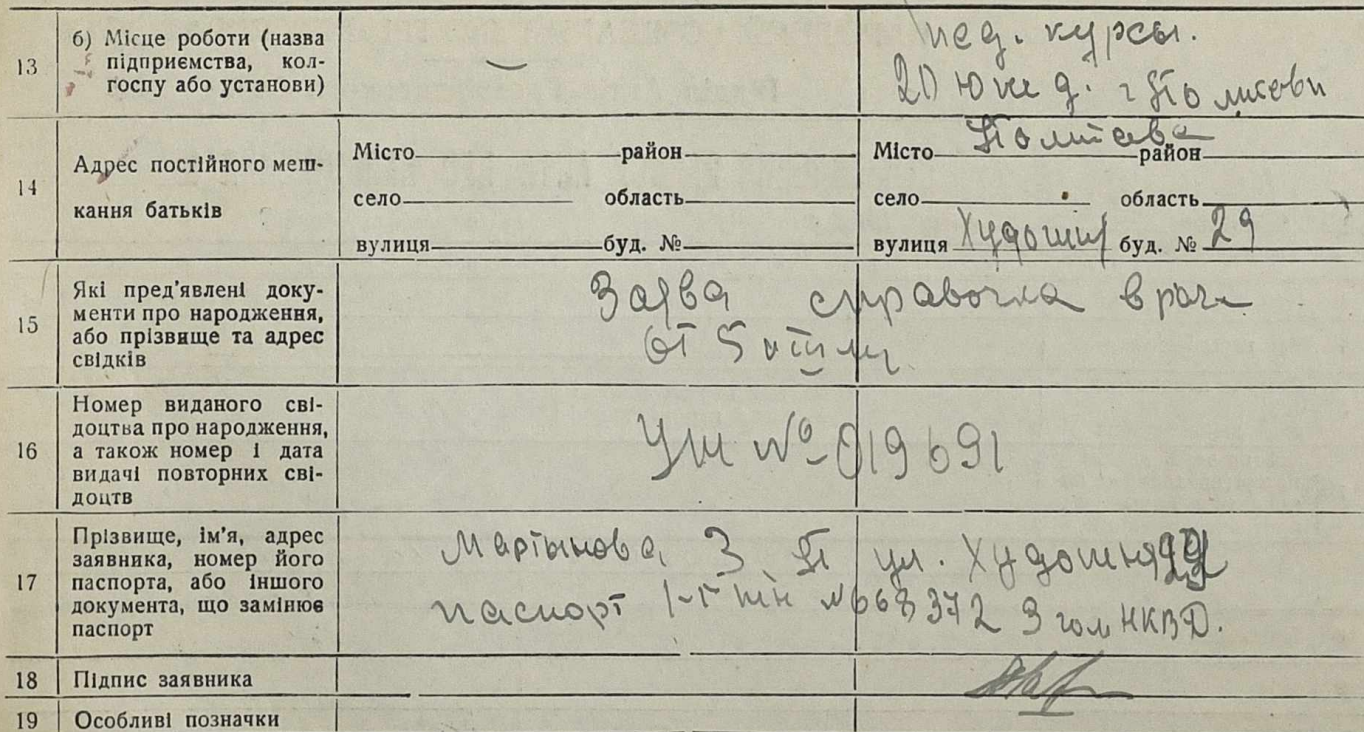 13 б) Місце роботи (назва підприємства, колгоспу або установи) — пед. курсы.
20 юже д. г
14 Адрес постійного мешкання батьків
Місто район Місто район
село область село область
вулиця буд. № вулиця Худошн буд. № 29
15 Які пред'явлені документи про народження, або прізвище та адрес свідків
Заява справочка врача
от 5
16 Номер виданого свідоцтва про народження, а також номер і дата видачі повторних свідоцтв
УШ № 019691
17 Прізвище, ім'я, адрес заявника, номер його паспорта, або іншого документа, що замінює паспорт
Мартынова З П ул. Худошня 29
паспорт № 668372 3 гом НКВД.
18 Підпис заявника
19 Особливі позначки